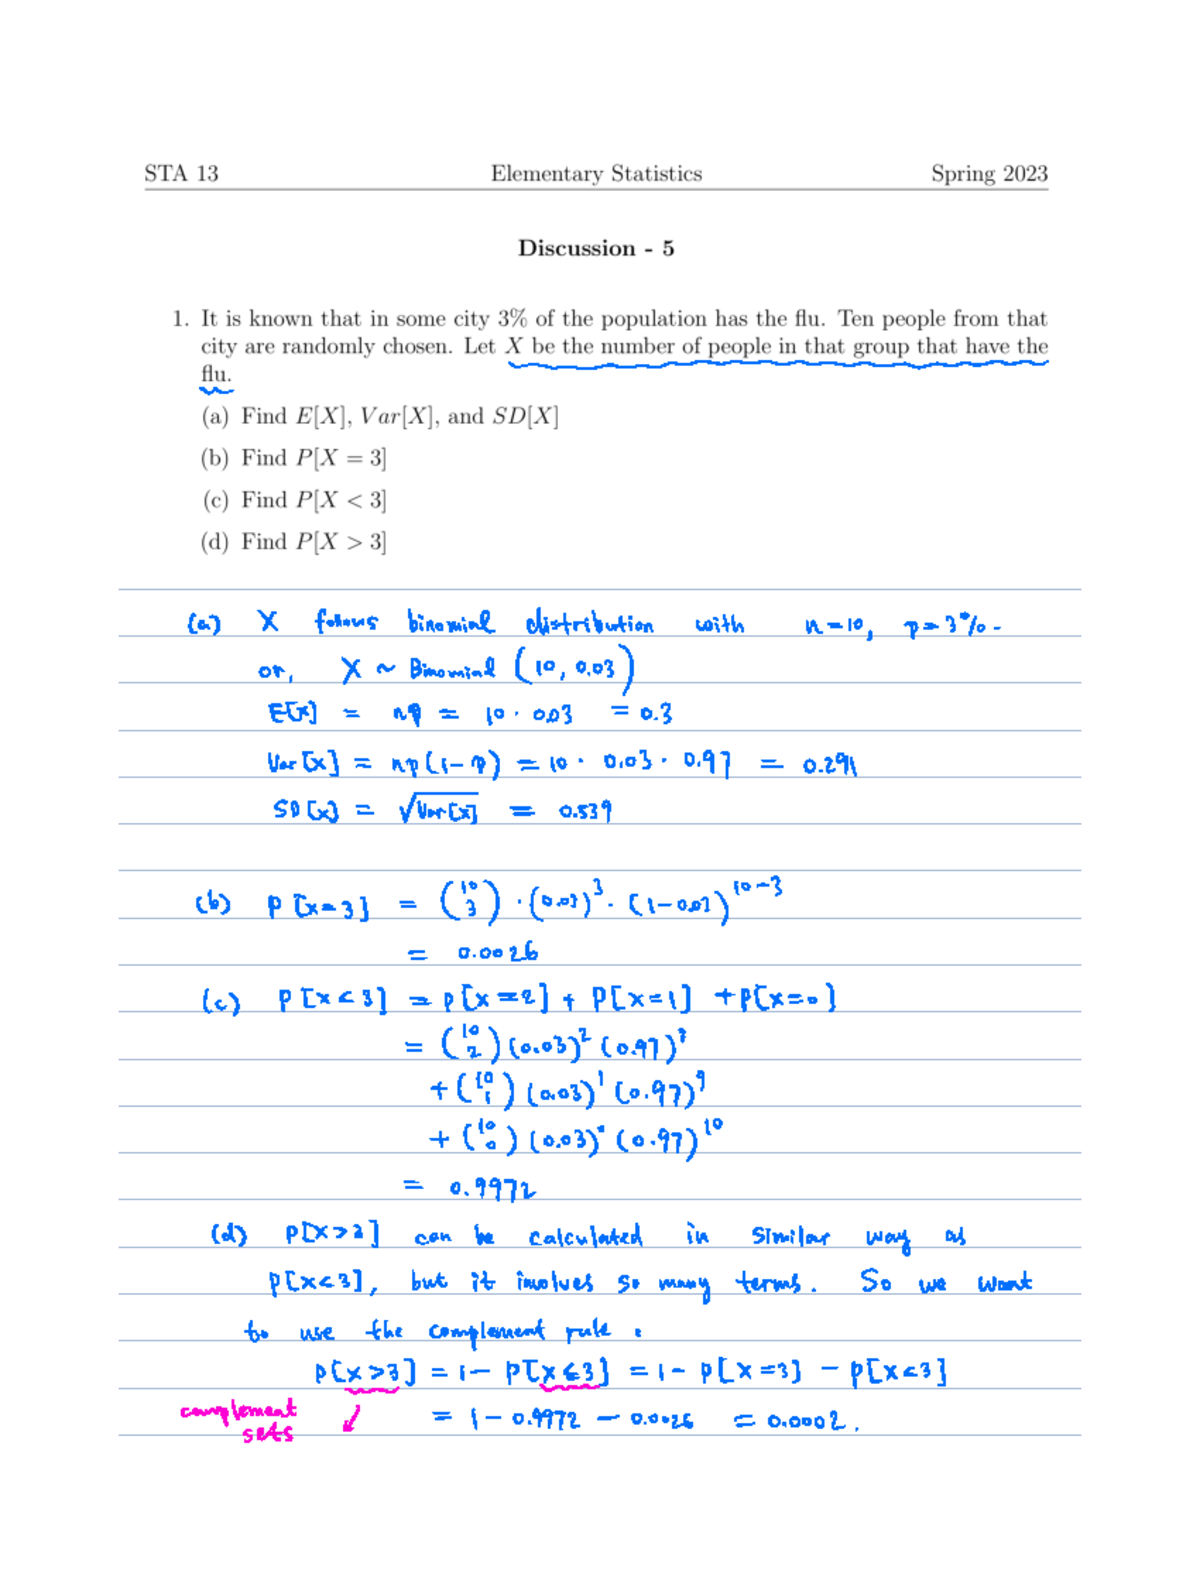 STA 13 Elementary Statistics Spring 2023
Discussion - 5
1. It is known that in some city 3% of the population has the flu. Ten people from that
city are randomly chosen. Let X be the number of people in that group that have the
flu.
(a) Find E[X], Var[X], and SD[X]
(b) Find P[X = 3]
(c) Find P[X < 3]
(d) Find P[X > 3]
(a) X follows binomial distribution with n=10, p=3%.
or, X ~ Binomial (10, 0.03)
E[X] = np = 10 · 0.03 = 0.3
Var[X] = np(1-p) = 10 · 0.03 · 0.97 = 0.291
SD[X] = √Var[X] = 0.539
(b) P[X=3] = (10 3) · (0.03)³ · (1-0.03)¹⁰⁻³
= 0.0026
(c) P[X<3] = P[X=2] + P[X=1] + P[X=0]
= (10 2) (0.03)² (0.97)⁸
+ (10 1) (0.03)¹ (0.97)⁹
+ (10 0) (0.03)⁰ (0.97)¹⁰
= 0.9972
(d) P[X>3] can be calculated in similar way as
P[X<3], but it involves so many terms. So we want
to use the complement rule :
P[X>3] = 1 - P[X≤3] = 1 - P[X=3] - P[X<3]
complement = 1 - 0.9972 - 0.0026 = 0.0002.
sets